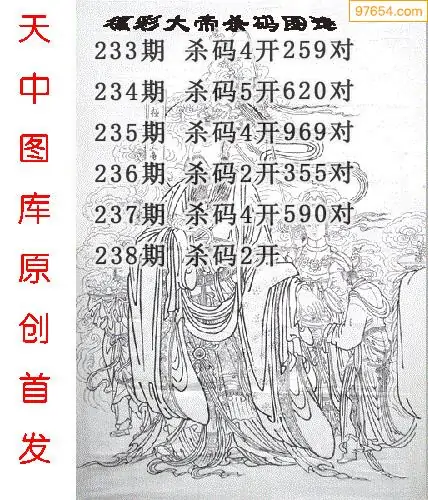 97654.com
福彩大帝杀码图谜
天中图库原创首发
233期 杀码4开259对
234期 杀码5开620对
235期 杀码4开969对
236期 杀码2开355对
237期 杀码4开590对
238期 杀码2开